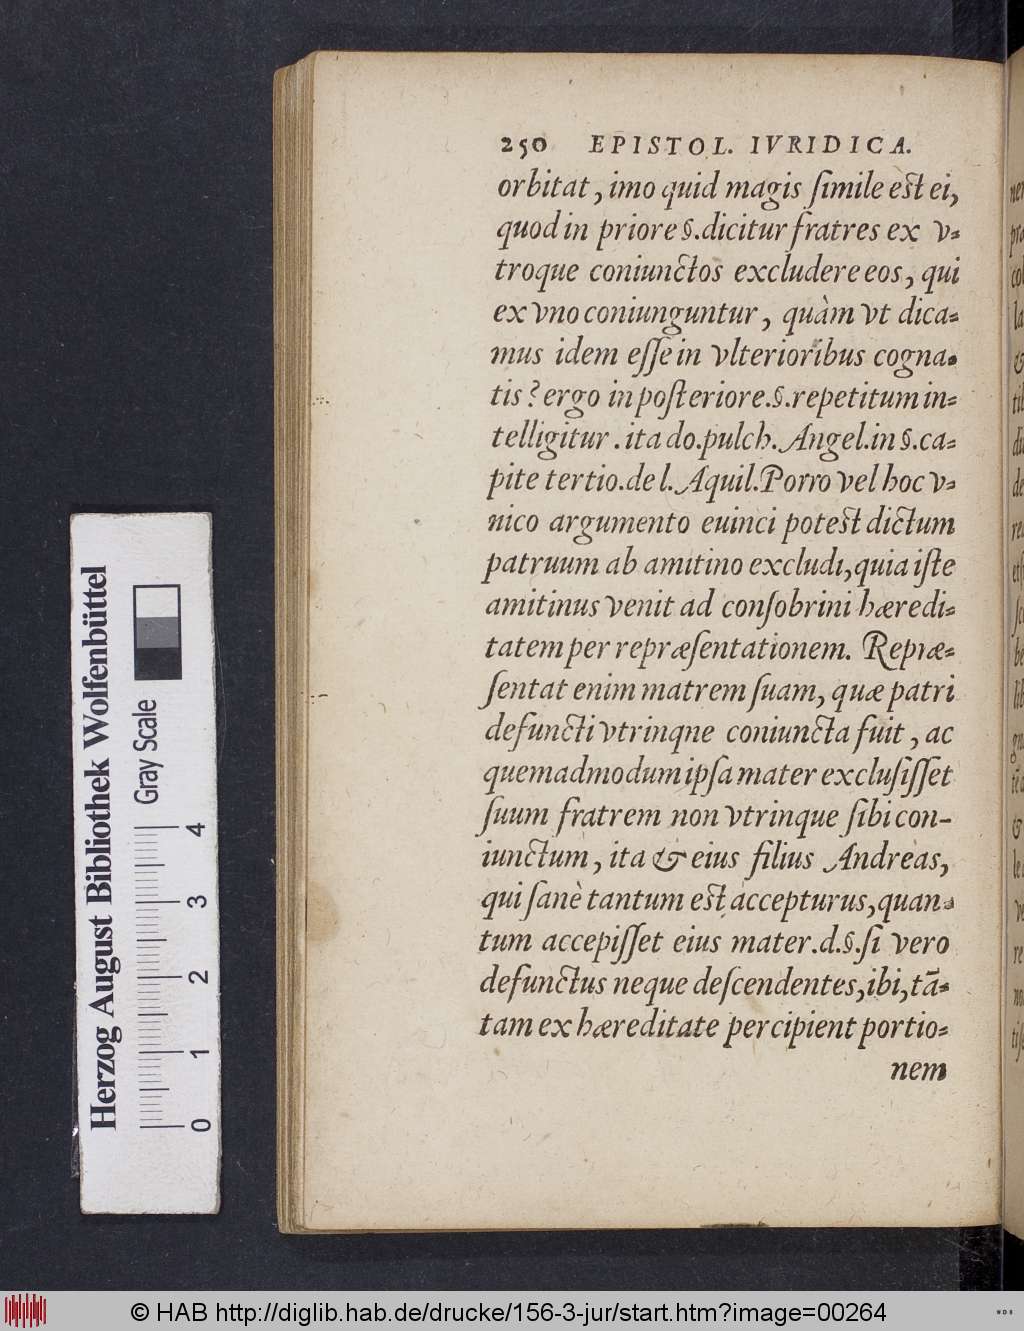 250 EPISTOL. IVRIDICA.
orbitat, imo quid magis ſimile est ei,
quod in priore §. dicitur fratres ex v-
troque coniunctos excludere eos, qui
ex vno coniunguntur, quàm vt dica-
mus idem eſſe in vlterioribus cogna-
tis? ergo in poſteriore.§.repetitum in-
telligitur. ita do.pulch. Angel. in §. ca-
pite tertio. de l. Aquil. Porro vel hoc v-
nico argumento euinci potest dictum
patruum ab amitino excludi, quia iſte
amitinus venit ad conſobrini hæredi-
tatem per repræſentationem. Repræ-
ſentat enim matrem ſuam, quæ patri
defuncti vtrinqne coniuncta fuit, ac
quemadmodum ipſa mater excluſiſſet
ſuum fratrem non vtrinque ſibi con-
iunctum, ita & eius filius Andreas,
qui ſanè tantum est accepturus, quan-
tum accepiſſet eius mater. d.§. ſi vero
defunctus neque deſcendentes, ibi, tā-
tam ex hæreditate percipient portio-
nem
Herzog August Bibliothek Wolfenbüttel
Gray Scale
0 1 2 3 4
© HAB http://diglib.hab.de/drucke/156-3-jur/start.htm?image=00264